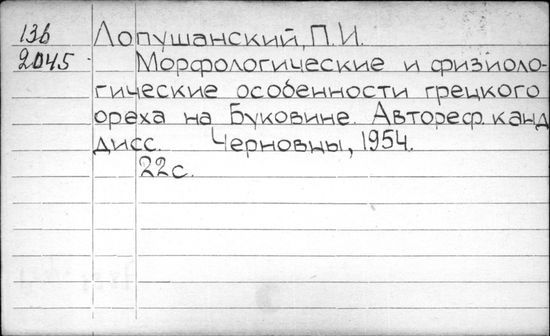 136 Лопушанский, П.И.
2045 Морфологические и физиоло-
гические особенности грецкого
ореха на Буковине. Автореф. канд.
дисс. Черновцы, 1954.
22с.